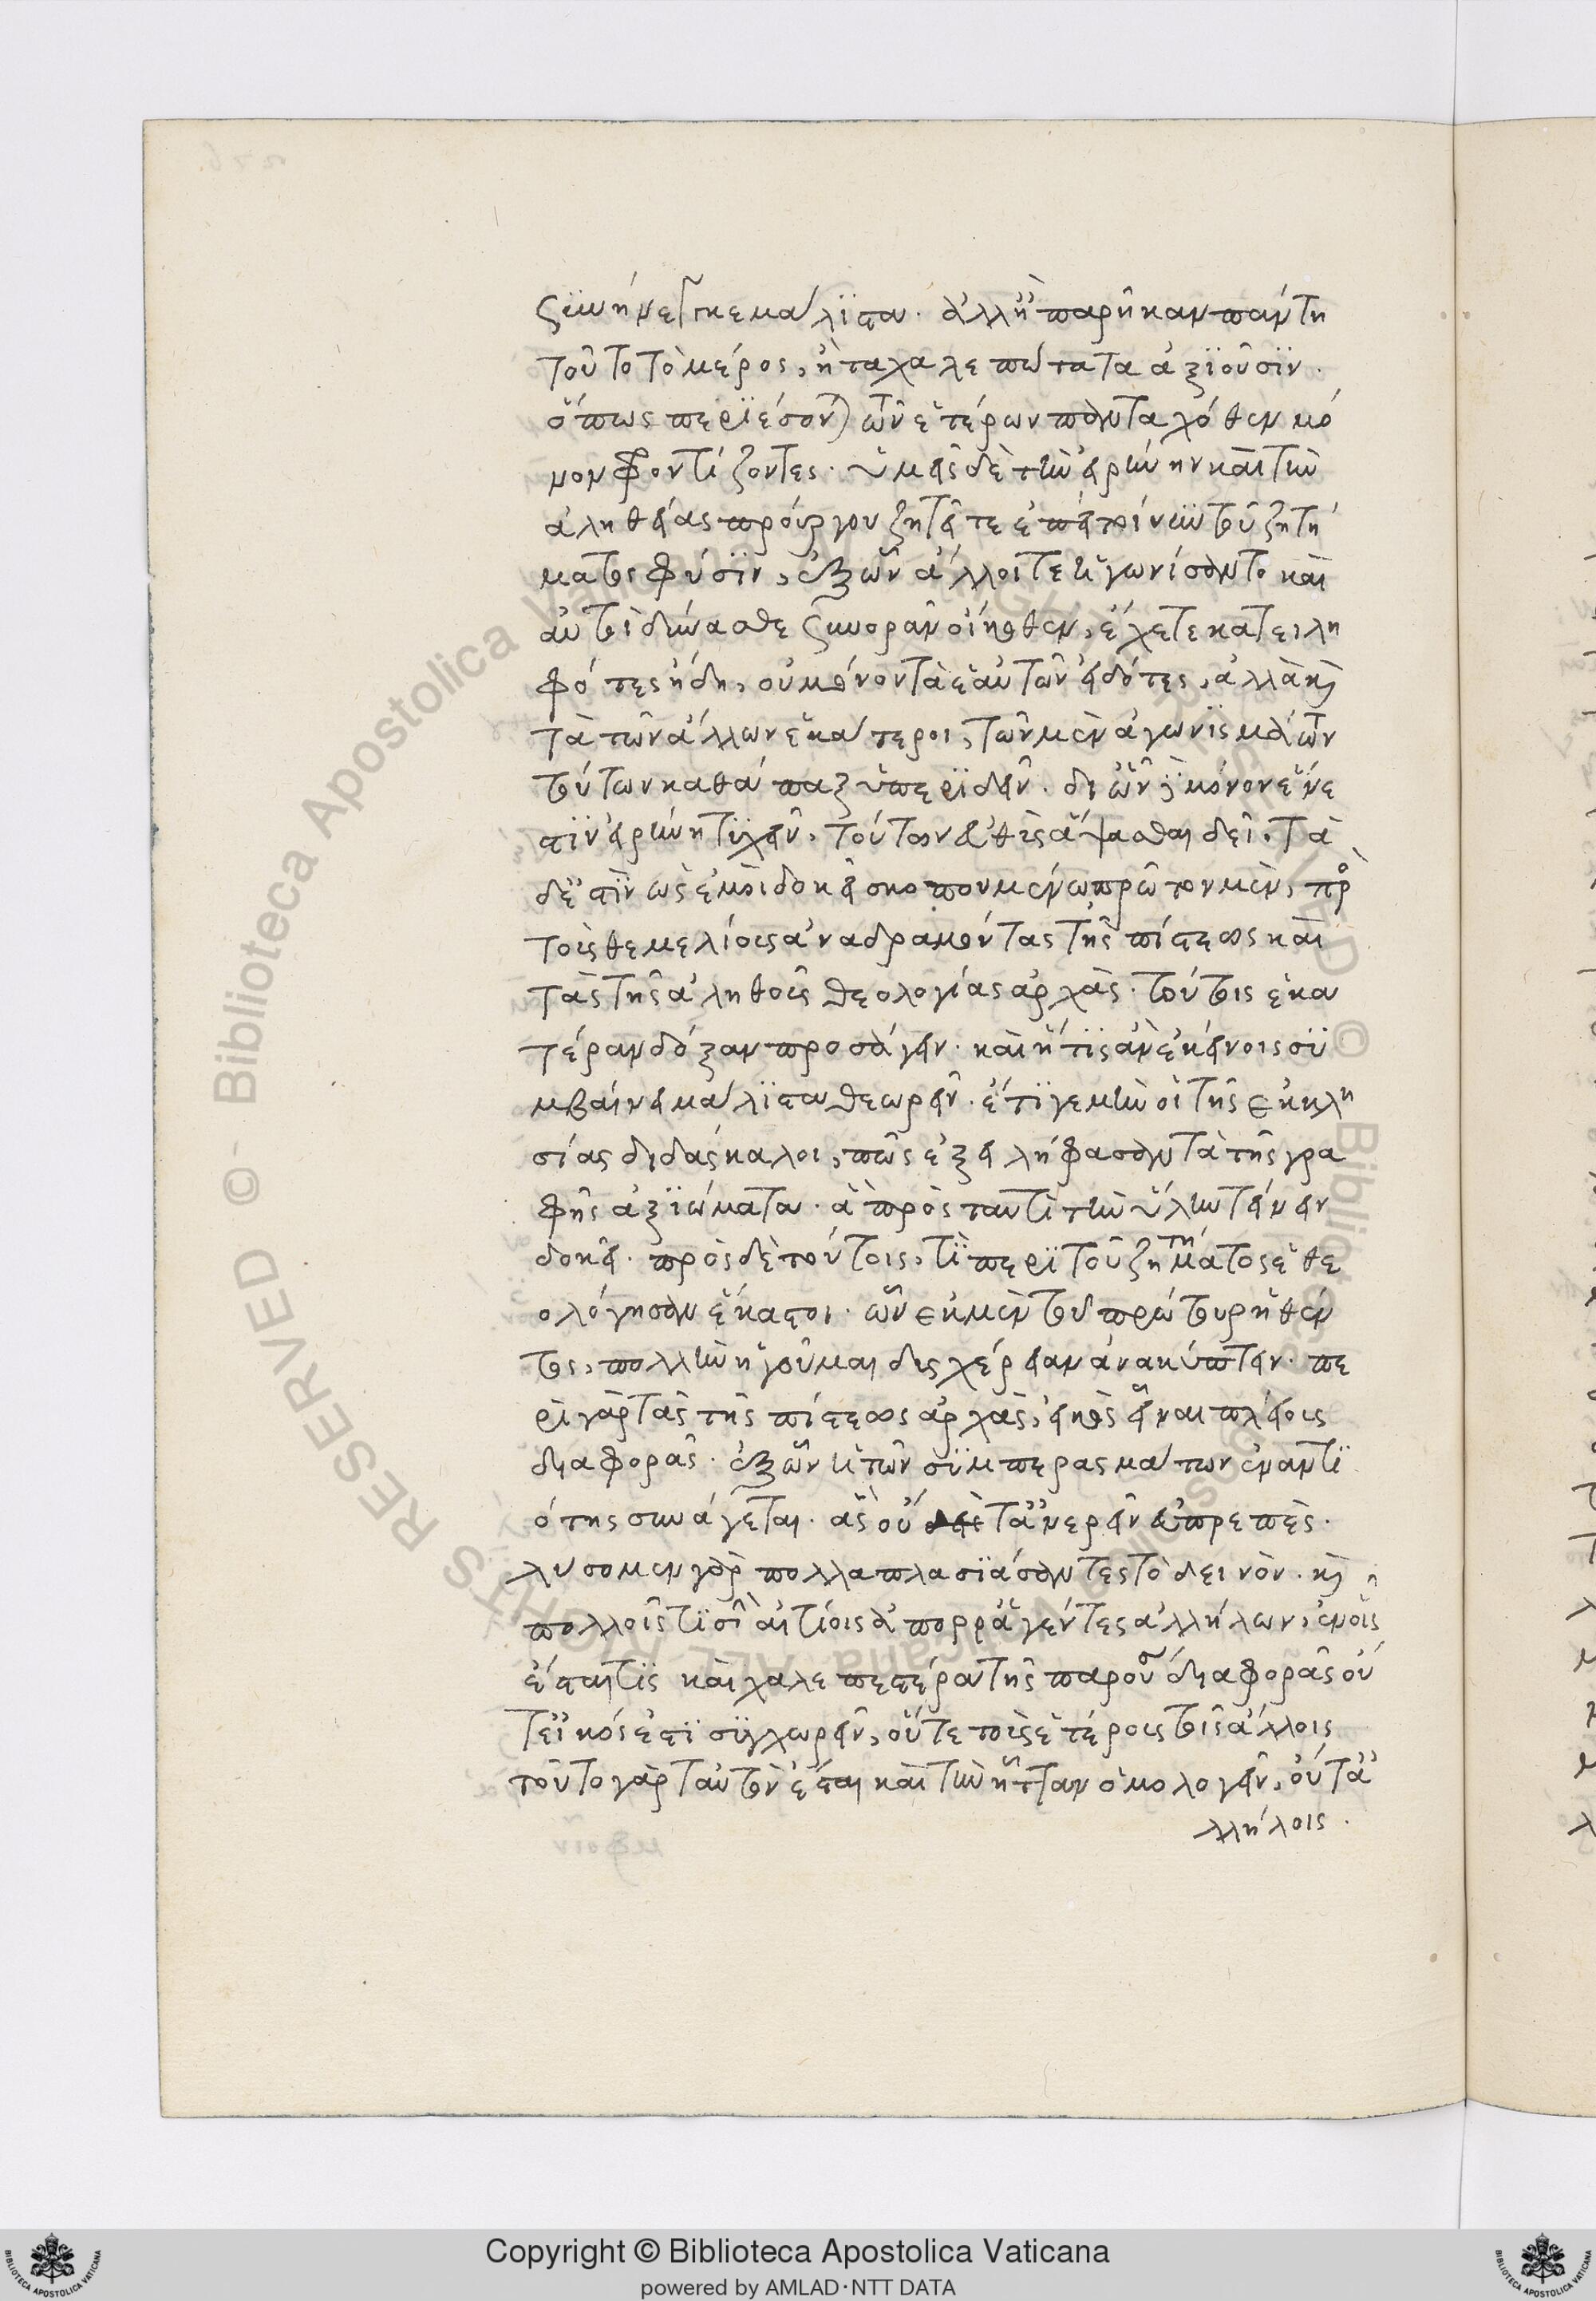 συνήνεγκε μάλιστα. ἀλλ' ἢ παρῆκαν πάντη
τοῦτο τὸ μέρος, ἢ τὰ χαλεπώτατα ἀξιοῦσιν.
ὅπως περιέσονται τῶν ἑτέρων πανταχόθεν μό
νον φροντίζοντες. ὑμεῖς δὲ τὴν εἰρήνην καὶ τὴν
ἀληθείας προύργου ζητεῖτε ἐπεὶ τοίνυν τοῦ ζητή
ματος φύσιν, ἐξ ὧν ἄλλοι τε ἠγωνίσαντο καὶ
αὐτοὶ δύνασθε συνορᾶν οἴκοθεν, ἔχετε κατειλη
φότες ἤδη, οὐ μόνον τὰ ἑαυτῶν εἰδότες, ἀλλὰ καὶ
τὰ τῶν ἄλλων ἑκάτεροι, τῶν μὲν ἀγωνισμάτων
τούτων καθάπαξ ὑπεριδεῖν. δι' ὧν δὲ μόνον ἔνε
στιν εἰρήνη τυχεῖν, τούτων εὐθὺς ἅψασθαι δεῖ. τὰ
δὲ ἐστὶν ὡς ἐμοὶ δοκεῖ σκοπουμένω πρῶτον μὲν, πρὸ
τοῖς θεμελίοις ἀναδραμόντας τῆς πίστεως καὶ
τὰς τῆς ἀληθοῦς θεολογίας ἀρχὰς. τούτοις ἑκα
τέραν δόξαν προσάγειν. καὶ ἥτις ἂν ἐκείνοις συ
μβαίνει μάλιστα θεωρεῖν. ἔτι γε μὴν οἱ τῆς ἐκκλη
σίας διδάσκαλοι, πῶς ἐξειλήφασαν τὰ τῆς γρα
φῆς ἀξιώματα. ἃ πρὸς ταυτὶ τὴν ὕλην τείνειν
δοκεῖ. πρὸς δὲ τούτοις, τί περὶ τοῦ ζητήματος ἐθε
ολόγησαν ἕκαστοι. ὧν ἐκ μὲν τοῦ πρώτου ῥηθέν
τος, πολλὴν ἡγοῦμαι δυσχέρειαν ἀνακύπτειν. πε
ρὶ γὰρ τὰς τῆς πίστεως ἀρχὰς, εἰκὸς εἶναι πλείους
διαφορᾶς. ἐξ ὧν ἡ τῶν συμπερασμάτων ἐναντι
ότης συνάγεται. ἃς οὔτ' ἀνερεῖν εὐπρεπὲς.
λύσομεν γὰρ πολλαπλασιάσαντες τὸ δεινὸν. καὶ
πολλοῖς τισὶ αἰτίοις ἀπορραγέντες ἀλλήλων, ἐν οἷς
ἔσται τις καὶ χαλεπεστέρα τῆς παρούσης διαφορᾶς οὔ
τε εἰκός ἐστι συγχωρεῖν, οὔτε τοῖς ἑτέροις τοῖς ἄλλοις
τοῦτο γὰρ ταυτὸν ἔσται καὶ τὴν ἧτταν ὁμολογεῖν, οὔτ' ἀ
λλήλοις.